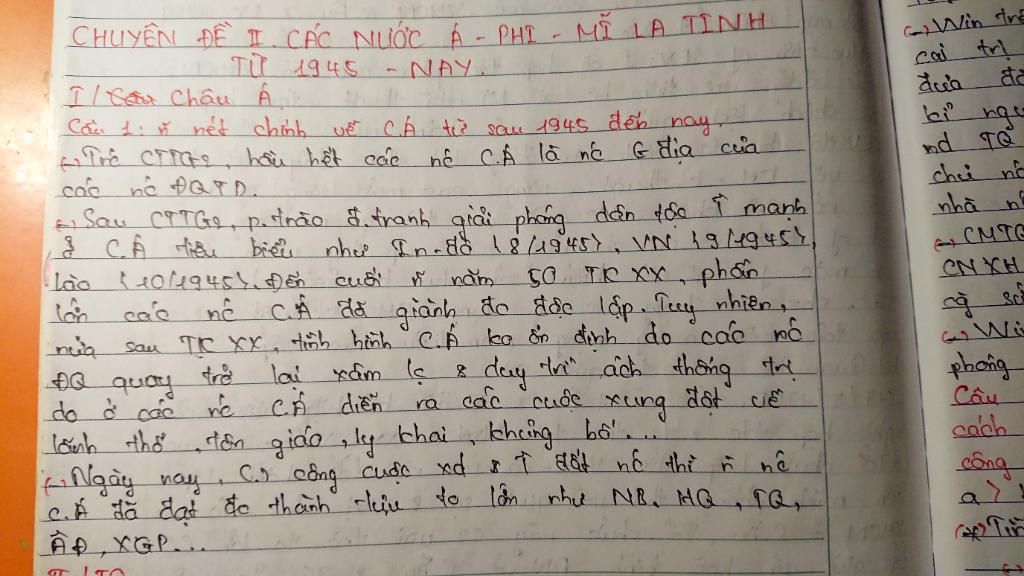 CHUYÊN ĐỀ II. CÁC NƯỚC Á - PHI - MĨ LA TINH
TỪ 1945 - NAY.
I/ Châu Á
Câu 1: ~ nét chính về C.Á từ sau 1945 đến nay.
(-) Trc CTTG2, hầu hết các nc C.Á là nc địa của
các nc ĐQTD.
(-) Sau CTTG2, p.trào đ.tranh giải phóng dân tộc ↑ mạnh
ở C.Á tiêu biểu như In-đô {8/1945}, VN {9/1945},
Lào {10/1945}. Đến cuối ~ năm 50 TK XX, phần
lớn các nc C.Á đã giành đc độc lập. Tuy nhiên,
nửa sau TK XX, tình hình C.Á ko ổn định do các nc
ĐQ quay trở lại xâm lc & duy trì ách thống trị
do ở các nc C.Á diễn ra các cuộc xung đột về
lãnh thổ, tôn giáo, ly khai, khủng bố...
(-) Ngày nay, (.) công cuộc xd & ↑ đất nc thì ~ nc
C.Á đã đạt đc thành tựu to lớn như NB, HQ, TQ,
ÂĐ, XGP...
II/ TQ
(-) Win
cai trị
đưa
kỉ
nd TQ
chủ
nhà
(-) CMTQ
CNXH
(-) Win
phong
Câu
cách
công
a>
(*)